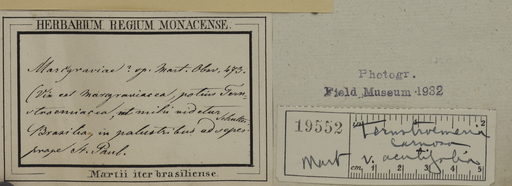 HERBARIUM REGIUM MONACENSE.
Marcgraviae? sp. Mart. Obss. 473.
(Vix est marcgraviacea, potius Tern-
stroemiacea, ut mihi videtur
Brasilia, in palustribus ad sepes
prope S. Paul.
Martii iter brasiliense.
Photogr.
Field Museum 1932
19552
Ternstroemeria
carnosa
Mart v. acutifolia
cm 1 2 3 4 5